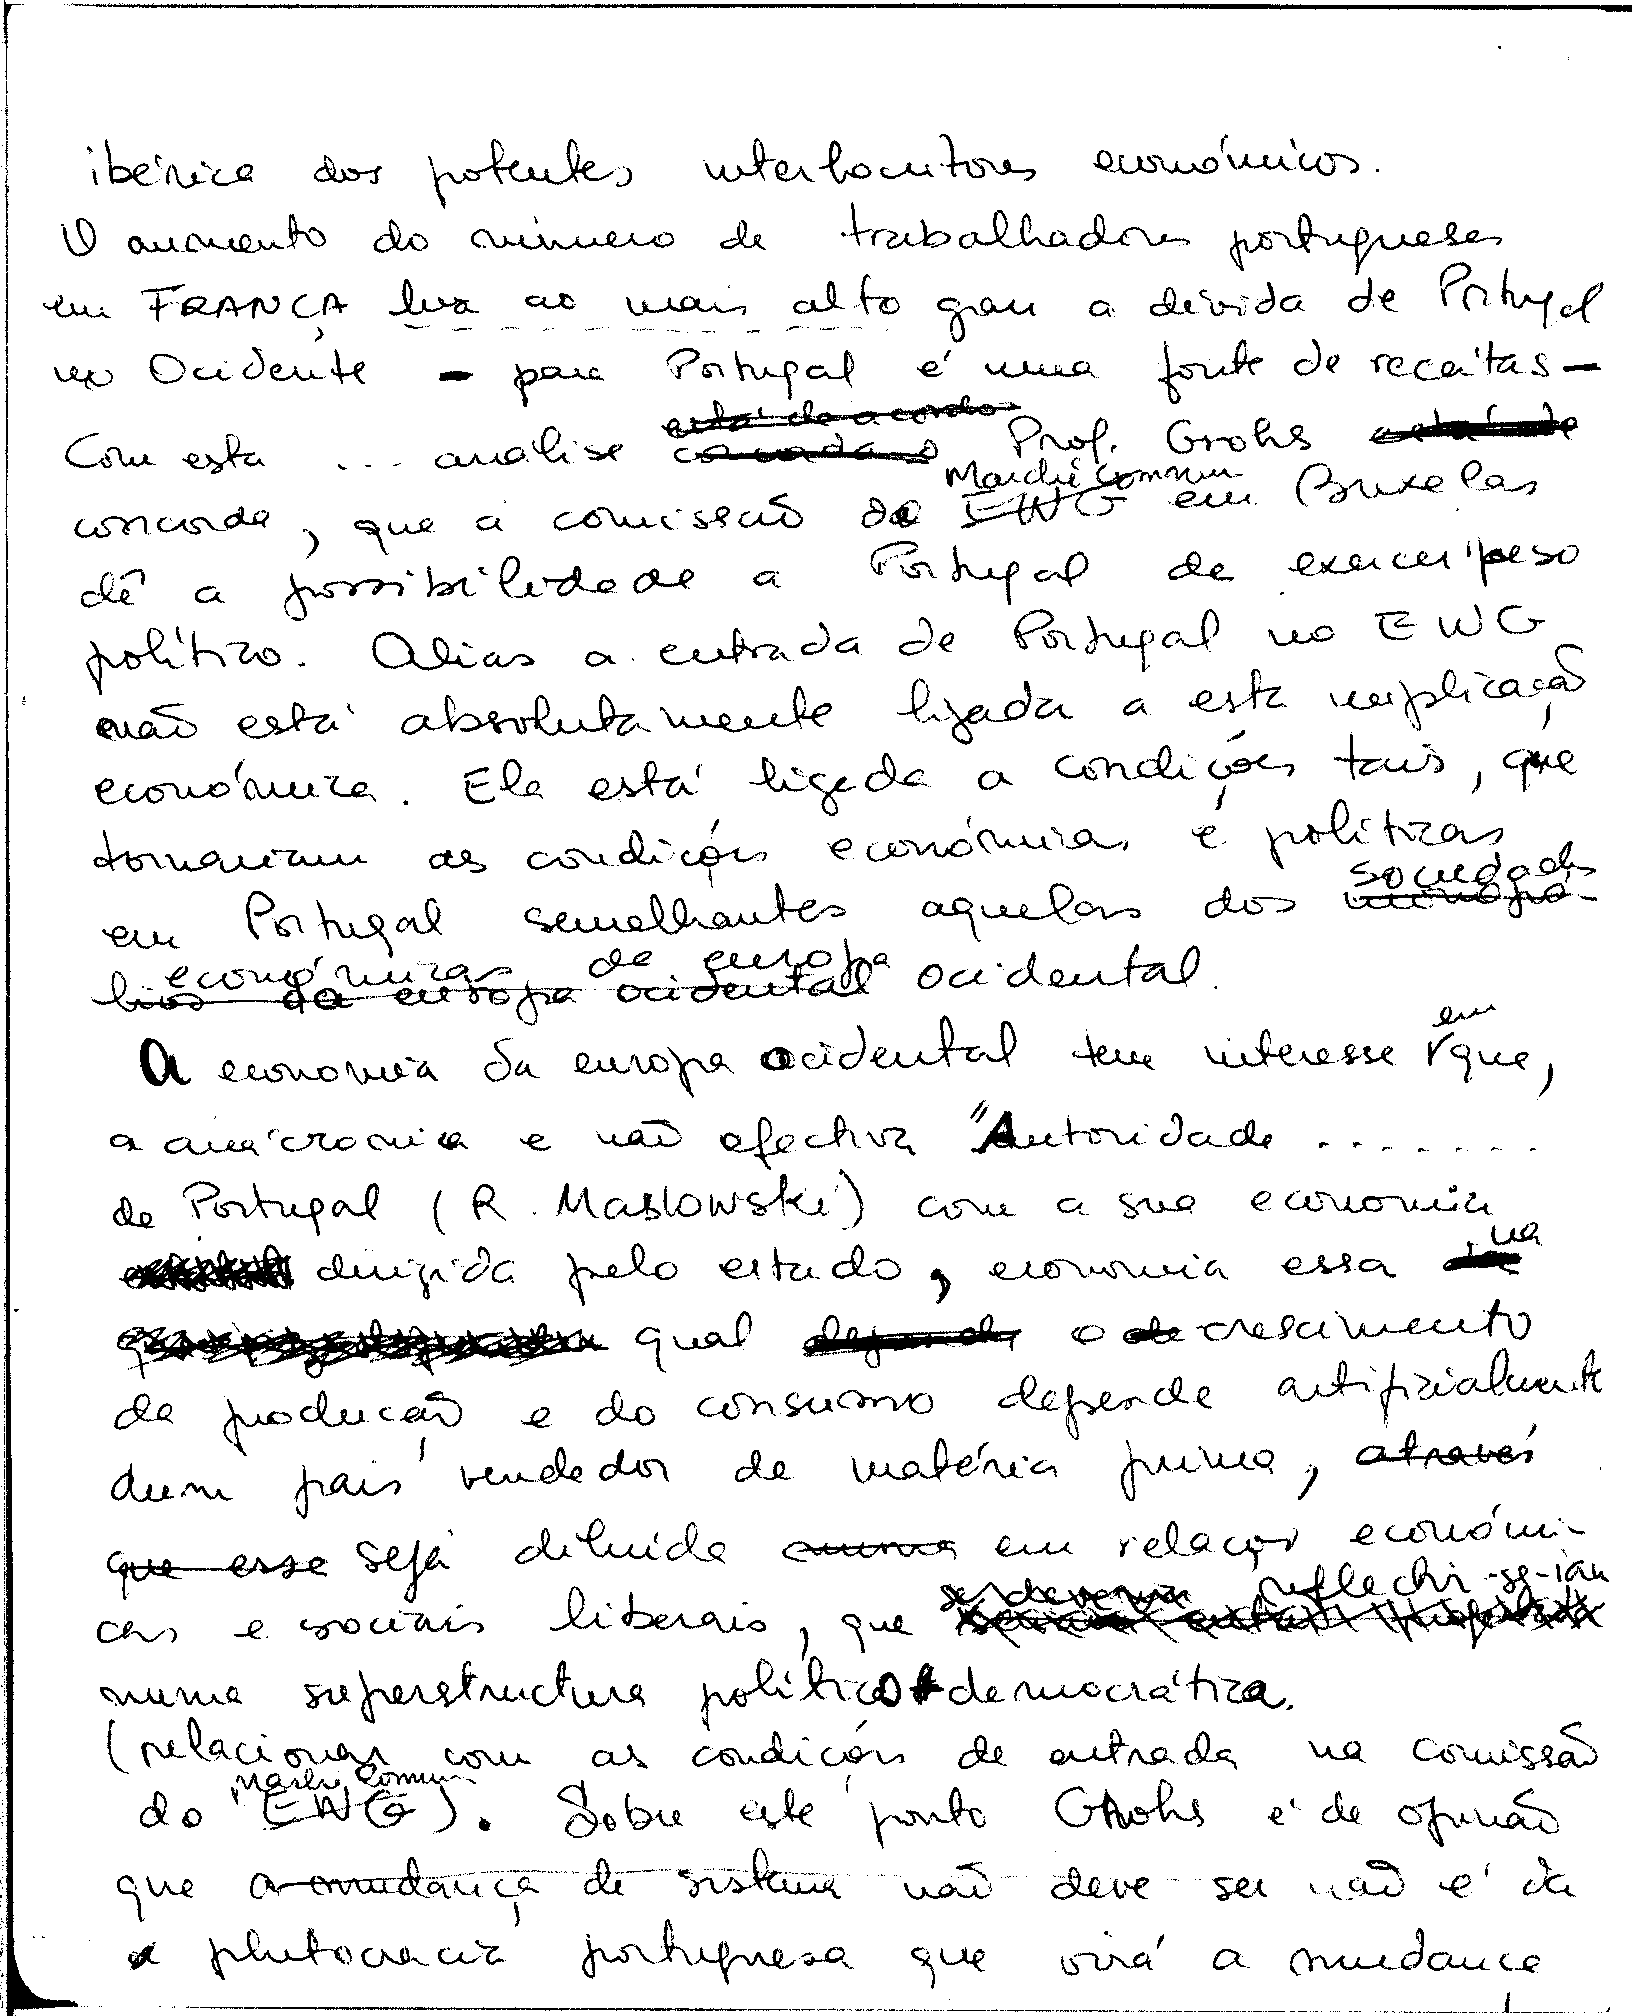 ibérica dos potentes interlocutores económicos.
O aumento do número de trabalhadores portugueses
em FRANÇA leva ao mais alto grau a dívida de Portugal
no Ocidente - para Portugal é uma fonte de receitas -
está de acordo
Com esta ... análise concorda o Prof. Grohs
Marché Commun
concorda, que a comissão do EWG em Bruxelas
dê a possibilidade a Portugal de exercer peso
político. Alias a entrada de Portugal no EWG
não está absolutamente ligada a esta implicação
económica. Ela está ligada a condições tais, que
tornariam as condições económicas e políticas
sociedades
em Portugal semelhantes aquelas dos monopó-
económicas de europa
lios da europa ocidental ocidental.
em
A economia da europa ocidental tem interesse que,
a anácronica e não efectiva "Autoridade .......
de Portugal (R. Maslowski) com a sua economia
, na
dirigida pelo estado, economia essa
qual depende o decrescimento
da produção e do consumo depende artificialmente
dum país vendedor de matéria prima, através
que esse seja diluída numa em relações económi-
se deveria reflectir-se-iam
cas e sociais liberais, que
numa superstructura político democrática.
(relacionar com as condições de entrada na comissão
March. Commun
do EWG). Sobre este ponto Grohs é de opinião
que a mudança de sistema não deve ser não é da
plutocracia portuguesa que virá a mudança